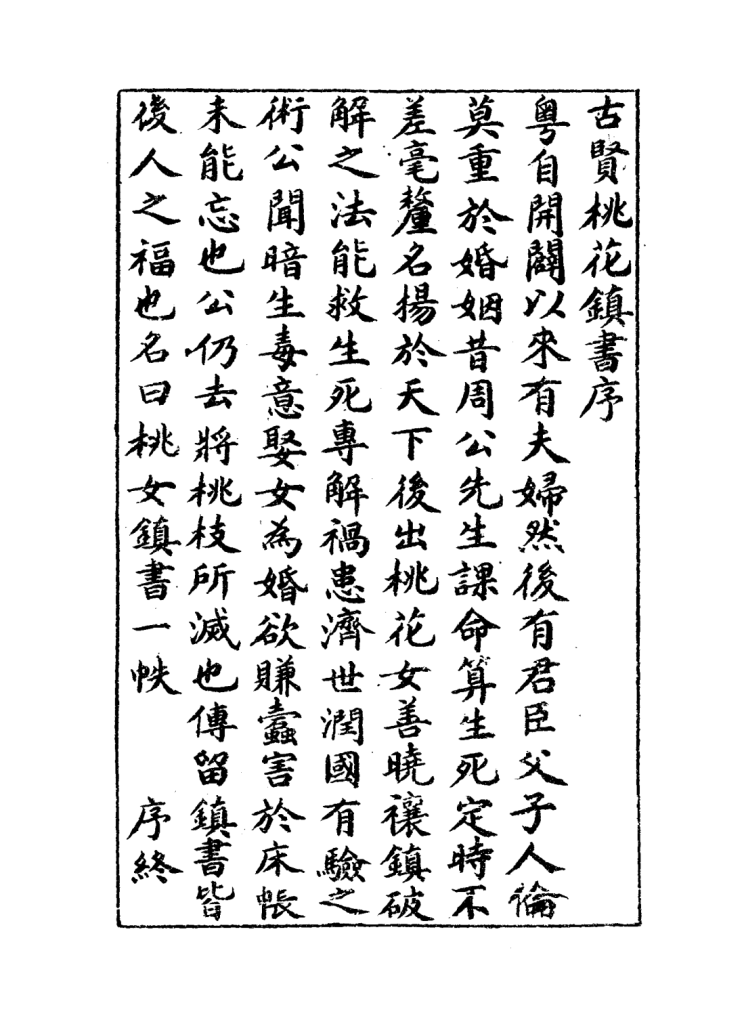 古賢桃花鎮書序
粵自開闢以來有夫婦然後有君臣父子人倫
莫重於婚姻昔周公先生課命算生死定時不
差毫釐名揚於天下後出桃花女善曉禳鎮破
解之法能救生死專解禍患濟世潤國有驗之
術公聞暗生毒意娶女為婚欲賺蠹害於床帳
未能忘也公仍去將桃枝所滅也傳留鎮書皆
後人之福也名曰桃女鎮書一帙　序終